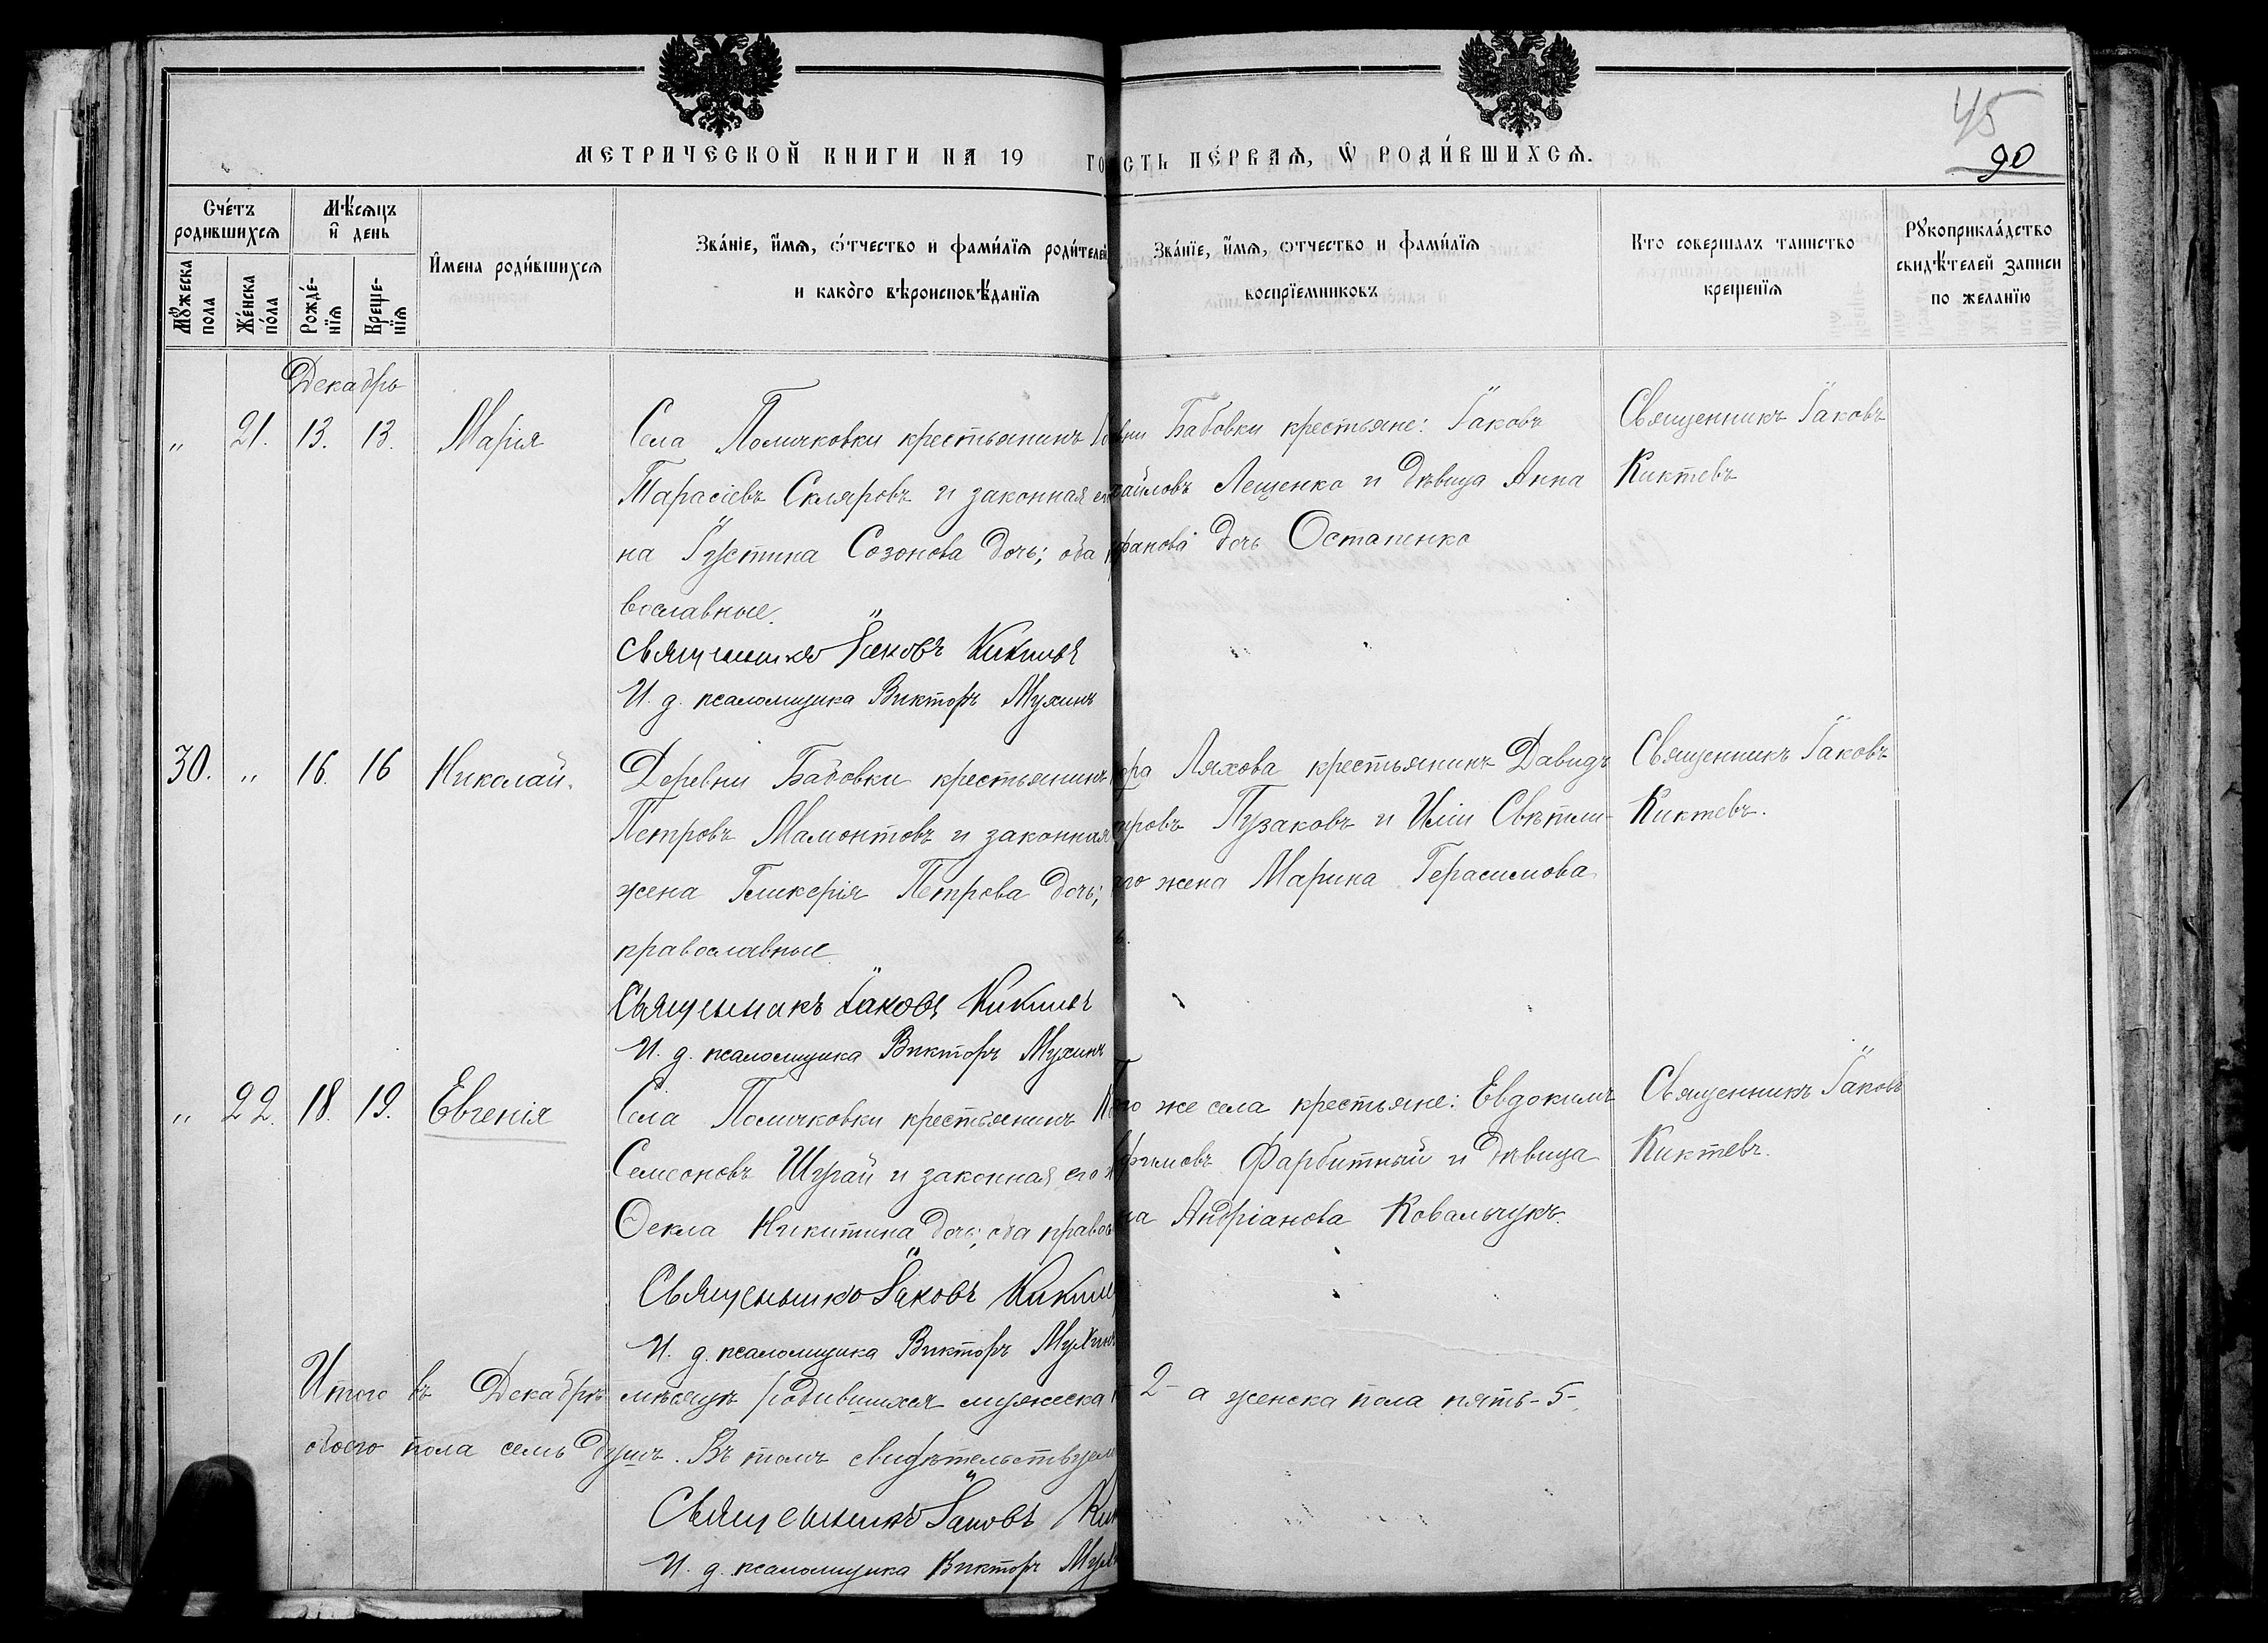 45
90
МЕТРИЧЕСКОЙ КНИГИ НА 19 ГО
СТЬ ПЕ́РВАѦ, Ѡ РОДИ́ВШИХСѦ.
Сче́тъ родившихсѧ
Мꙋ́жеска пола
Же́нска по́ла
Мѣ́сѧцъ и҆ день
Рожде́-нїѧ
Креще-нїѧ
И҆мена роди́вшихсѧ
Зва́нїе, и҆́мѧ, ѻ҆́тчество и фами́лїѧ роди́телей,
и како́го вѣроисповѣ́данїѧ
Зва́нїе, и҆́мѧ, ѻтчество и фами́лїѧ
воспрїемниковъ
Кто совершалъ таинство
крещенїѧ
Рꙋкоприкла́дство
свидѣ́телей записи
по желанїю
Декабрь
„ 21. 13. 13. Марія
Села Помичковки крестьянинъ
Тарасіевъ Скляровъ и законная его
на Іустина Созонова дочь; оба
вославные.
Священникъ Іаковъ Киктевъ
И. д. псаломщика Викторъ Мухинъ
вни Бабовки крестьяне: Іаковъ
хайловъ Лещенко и дѣвица Анна
фанова дочь Остапенко
Священникъ Іаковъ
Киктевъ
30. „ 16. 16 Николай.
Деревни Бабовки крестьянинъ
Петровъ Мамонтовъ и законная
жена Гликерія Петрова дочь;
православные.
Священникъ Іаковъ Киктевъ
И. д. псаломщика Викторъ Мухинъ
ора Ляхова крестьянинъ Давидъ
тровъ Пузаковъ и Иліи Свѣтли-
аго жена Марина Герасимова
Священникъ Іаковъ
Киктевъ.
„ 22. 18. 19. Евгенія
Села Помичковки крестьянинъ
Семеоновъ Шурай и законная его ж
Ѳекла Никитина дочь; оба правос
Священникъ Іаковъ Кикте
И. д. псаломщика Викторъ Мухинъ
го же села крестьяне: Евдокимъ
фимовъ Фарбитный и дѣвица
на Андріанова Ковальчукъ.
Священникъ Іаковъ
Киктевъ.
Итого въ Декабрѣ мѣсяцѣ родившихся мужеска
- 2 - а женска пола пять - 5 -,
обоего пола семь душъ. Въ томъ свидѣтельствуемъ
Священникъ Іаковъ Ки
И. д. псаломщика Викторъ Мух